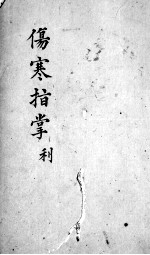 傷寒指掌 利